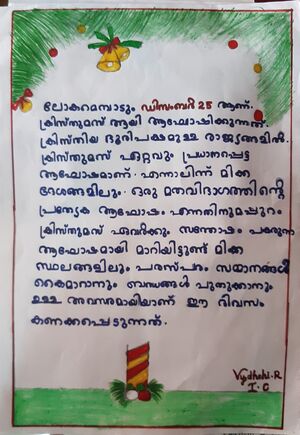 ലോകമെമ്പാടും ഡിസംബർ 25 ആണ്.
ക്രിസ്തുമസ് ആയി ആഘോഷിക്കുന്നത്.
ക്രിസ്തീയ ഭൂരിപക്ഷമുള്ള രാജ്യങ്ങളിൽ
ക്രിസ്തുമസ് ഏറ്റവും പ്രധാനപ്പെട്ട
ആഘോഷമാണ്. എന്നാലിന്ന് മിക്ക
ദേശങ്ങളിലും ഒരു മതവിഭാഗത്തിന്റെ
പ്രത്യേക ആഘോഷം എന്നതിനുമപ്പുറം
ക്രിസ്തുമസ് ഏവർക്കും സന്തോഷം പകരുന്ന
ആഘോഷമായി മാറിയിട്ടുണ്ട് മിക്ക
സ്ഥലങ്ങളിലും പരസ്പരം സമ്മാനങ്ങൾ
കൈമാറാനും ബന്ധങ്ങൾ പുതുക്കാനും
ഉള്ള അവസരമായിയാണ് ഈ ദിവസം
കണക്കപ്പെടുന്നത്.
Vydhehi.R
I.C